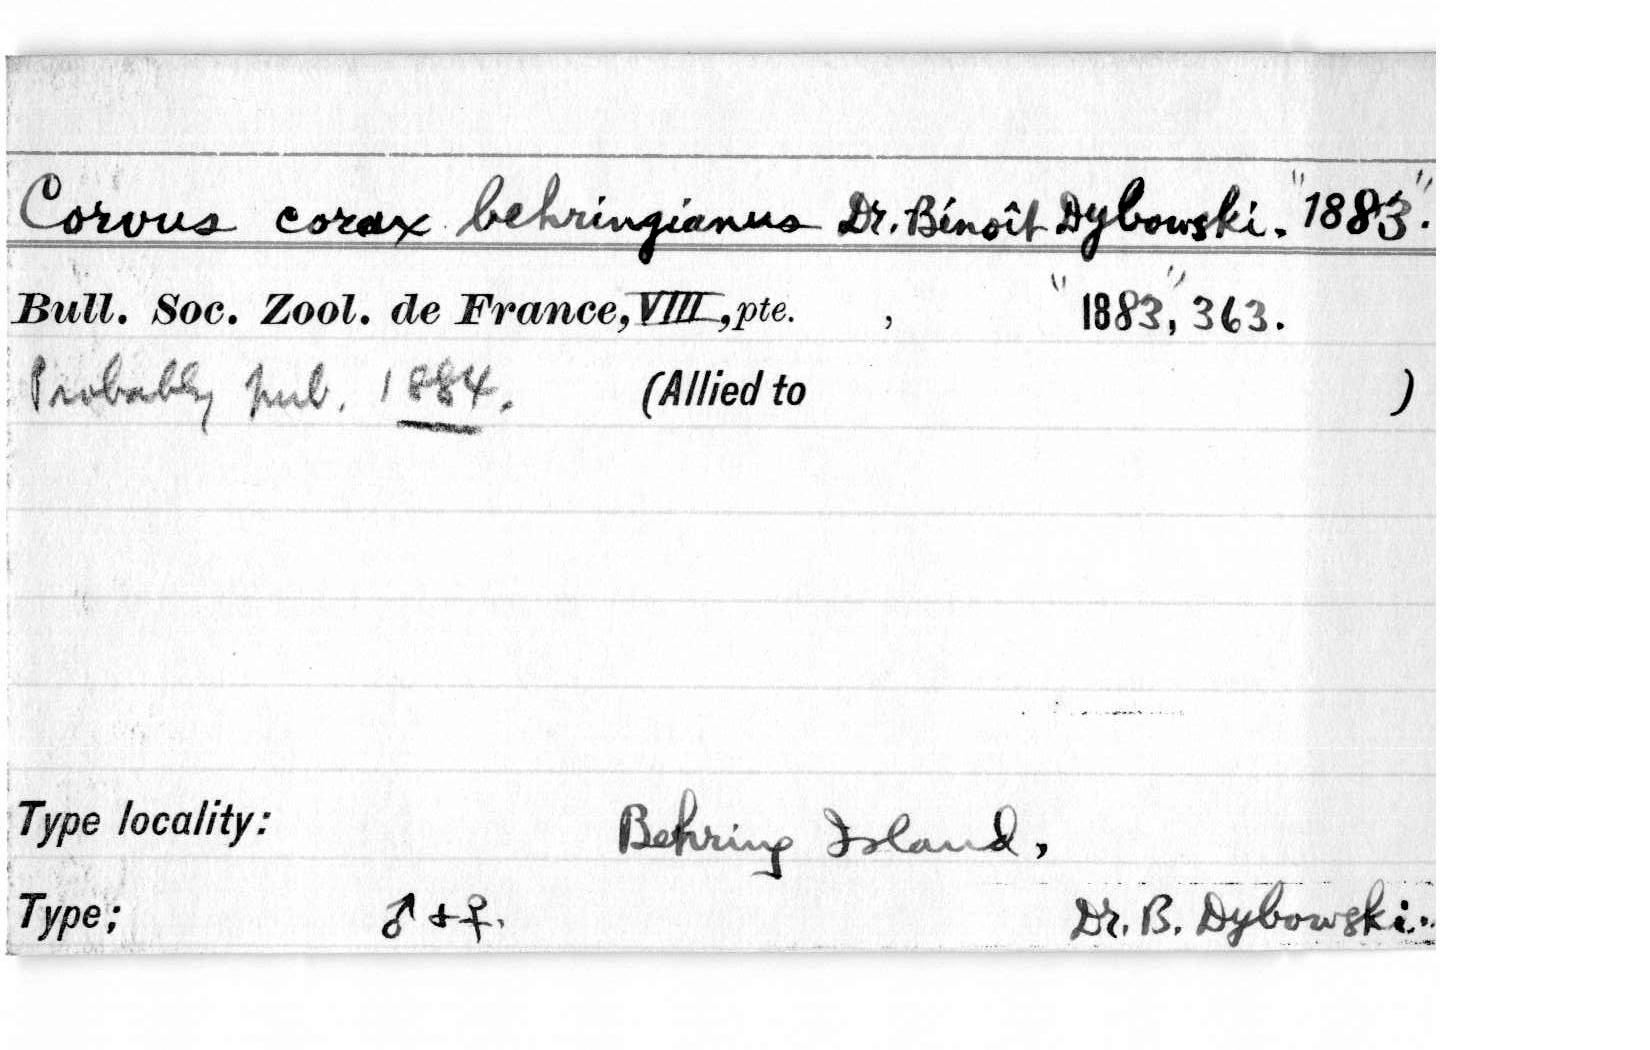 Corvus corax behringianus Dr. Bénoît Dybowski. "1883".
Bull. Soc. Zool. de France, VIII, pte. , "1883", 363.
Probably pub. 1884. (Allied to )
Type locality: Behring Island,
Type; ♂ + ♀. Dr. B. Dybowski.